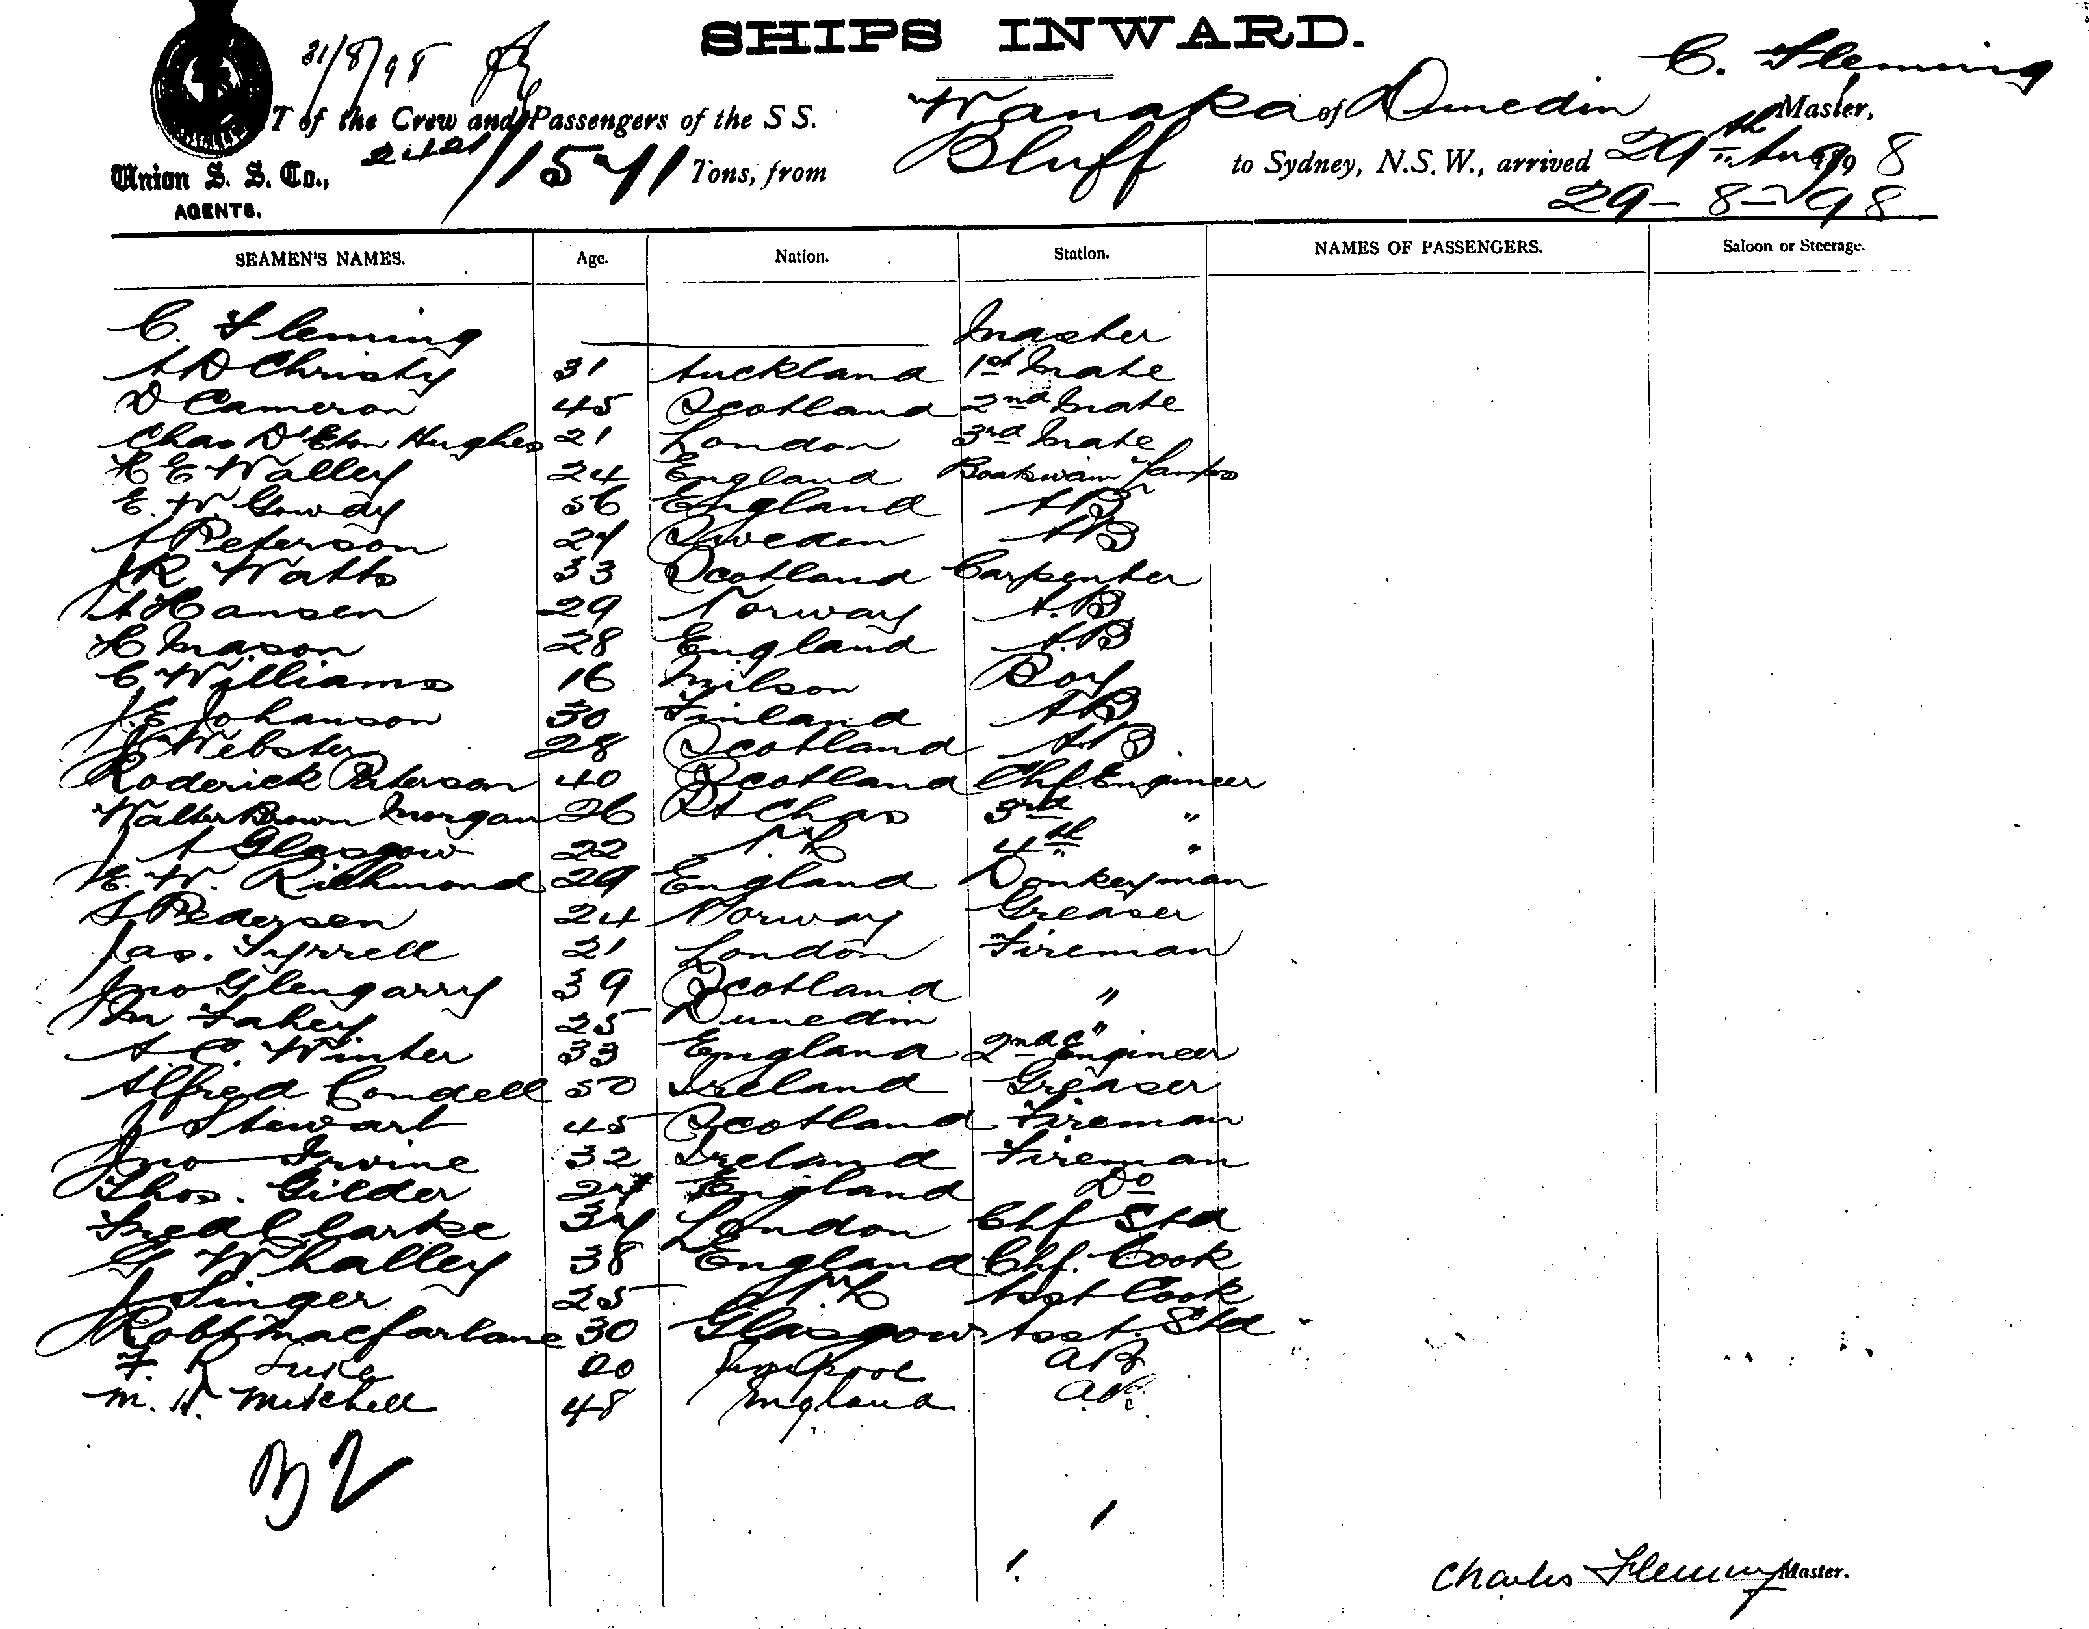 SHIPS INWARD.
31/8/98
C. Fleming
T of the Crew and Passengers of the S S. Wanaka of Dunedin Master,
Union S. S. Co., 2421/1571 Tons, from Bluff to Sydney, N.S.W., arrived 29th Aug 1898
AGENTS. 29-8-98
SEAMEN'S NAMES. Age. Nation. Station. NAMES OF PASSENGERS. Saloon or Steerage.
C. Fleming Master
A D Christy 31 Auckland 1st Mate
D Cameron 45 Scotland 2nd Mate
Chas D'Eton Hughes 21 London 3rd Mate
H E Walley 24 England Boatswain & Lamps
E. W. Goway 56 England AB
A Peterson 27 Sweden AB
J R Watts 33 Scotland Carpenter
A Hansen 29 Norway A.B
H Mason 28 England A.B
C Williams 16 Boy
J. E Johanson 30 Finland AB
J Webster 28 Scotland A.B.
Roderick Paterson 40 Scotland Chf Engineer
Walter Brown Morgan 26 Pt Chas 3rd "
J A Glasgow 22 NZ 4th "
E. W. Richmond 29 England Donkeyman
S Pedersen 24 Norway Greaser
Jas. Tyrrell 21 London Fireman
Jno Glengarry 39 Scotland "
M Fahey 25 Dunedin "
A C. Winter 33 England 2nd Engineer
Alfred Condell 50 Ireland Greaser
J Stewart 45 Scotland Fireman
Jno Irvine 32 Ireland Fireman
Thos. Gilder 27 England Do
Fred Clarke 37 London Chf Std
G Whalley 38 England Chf. Cook
J Singer 25 NZ Asst Cook
Robt Macfarlane 30 Glasgow Asst. Std
F. R Luke 20 AB
M. H. Mitchell 48 England AB
32
Charles Fleming Master.